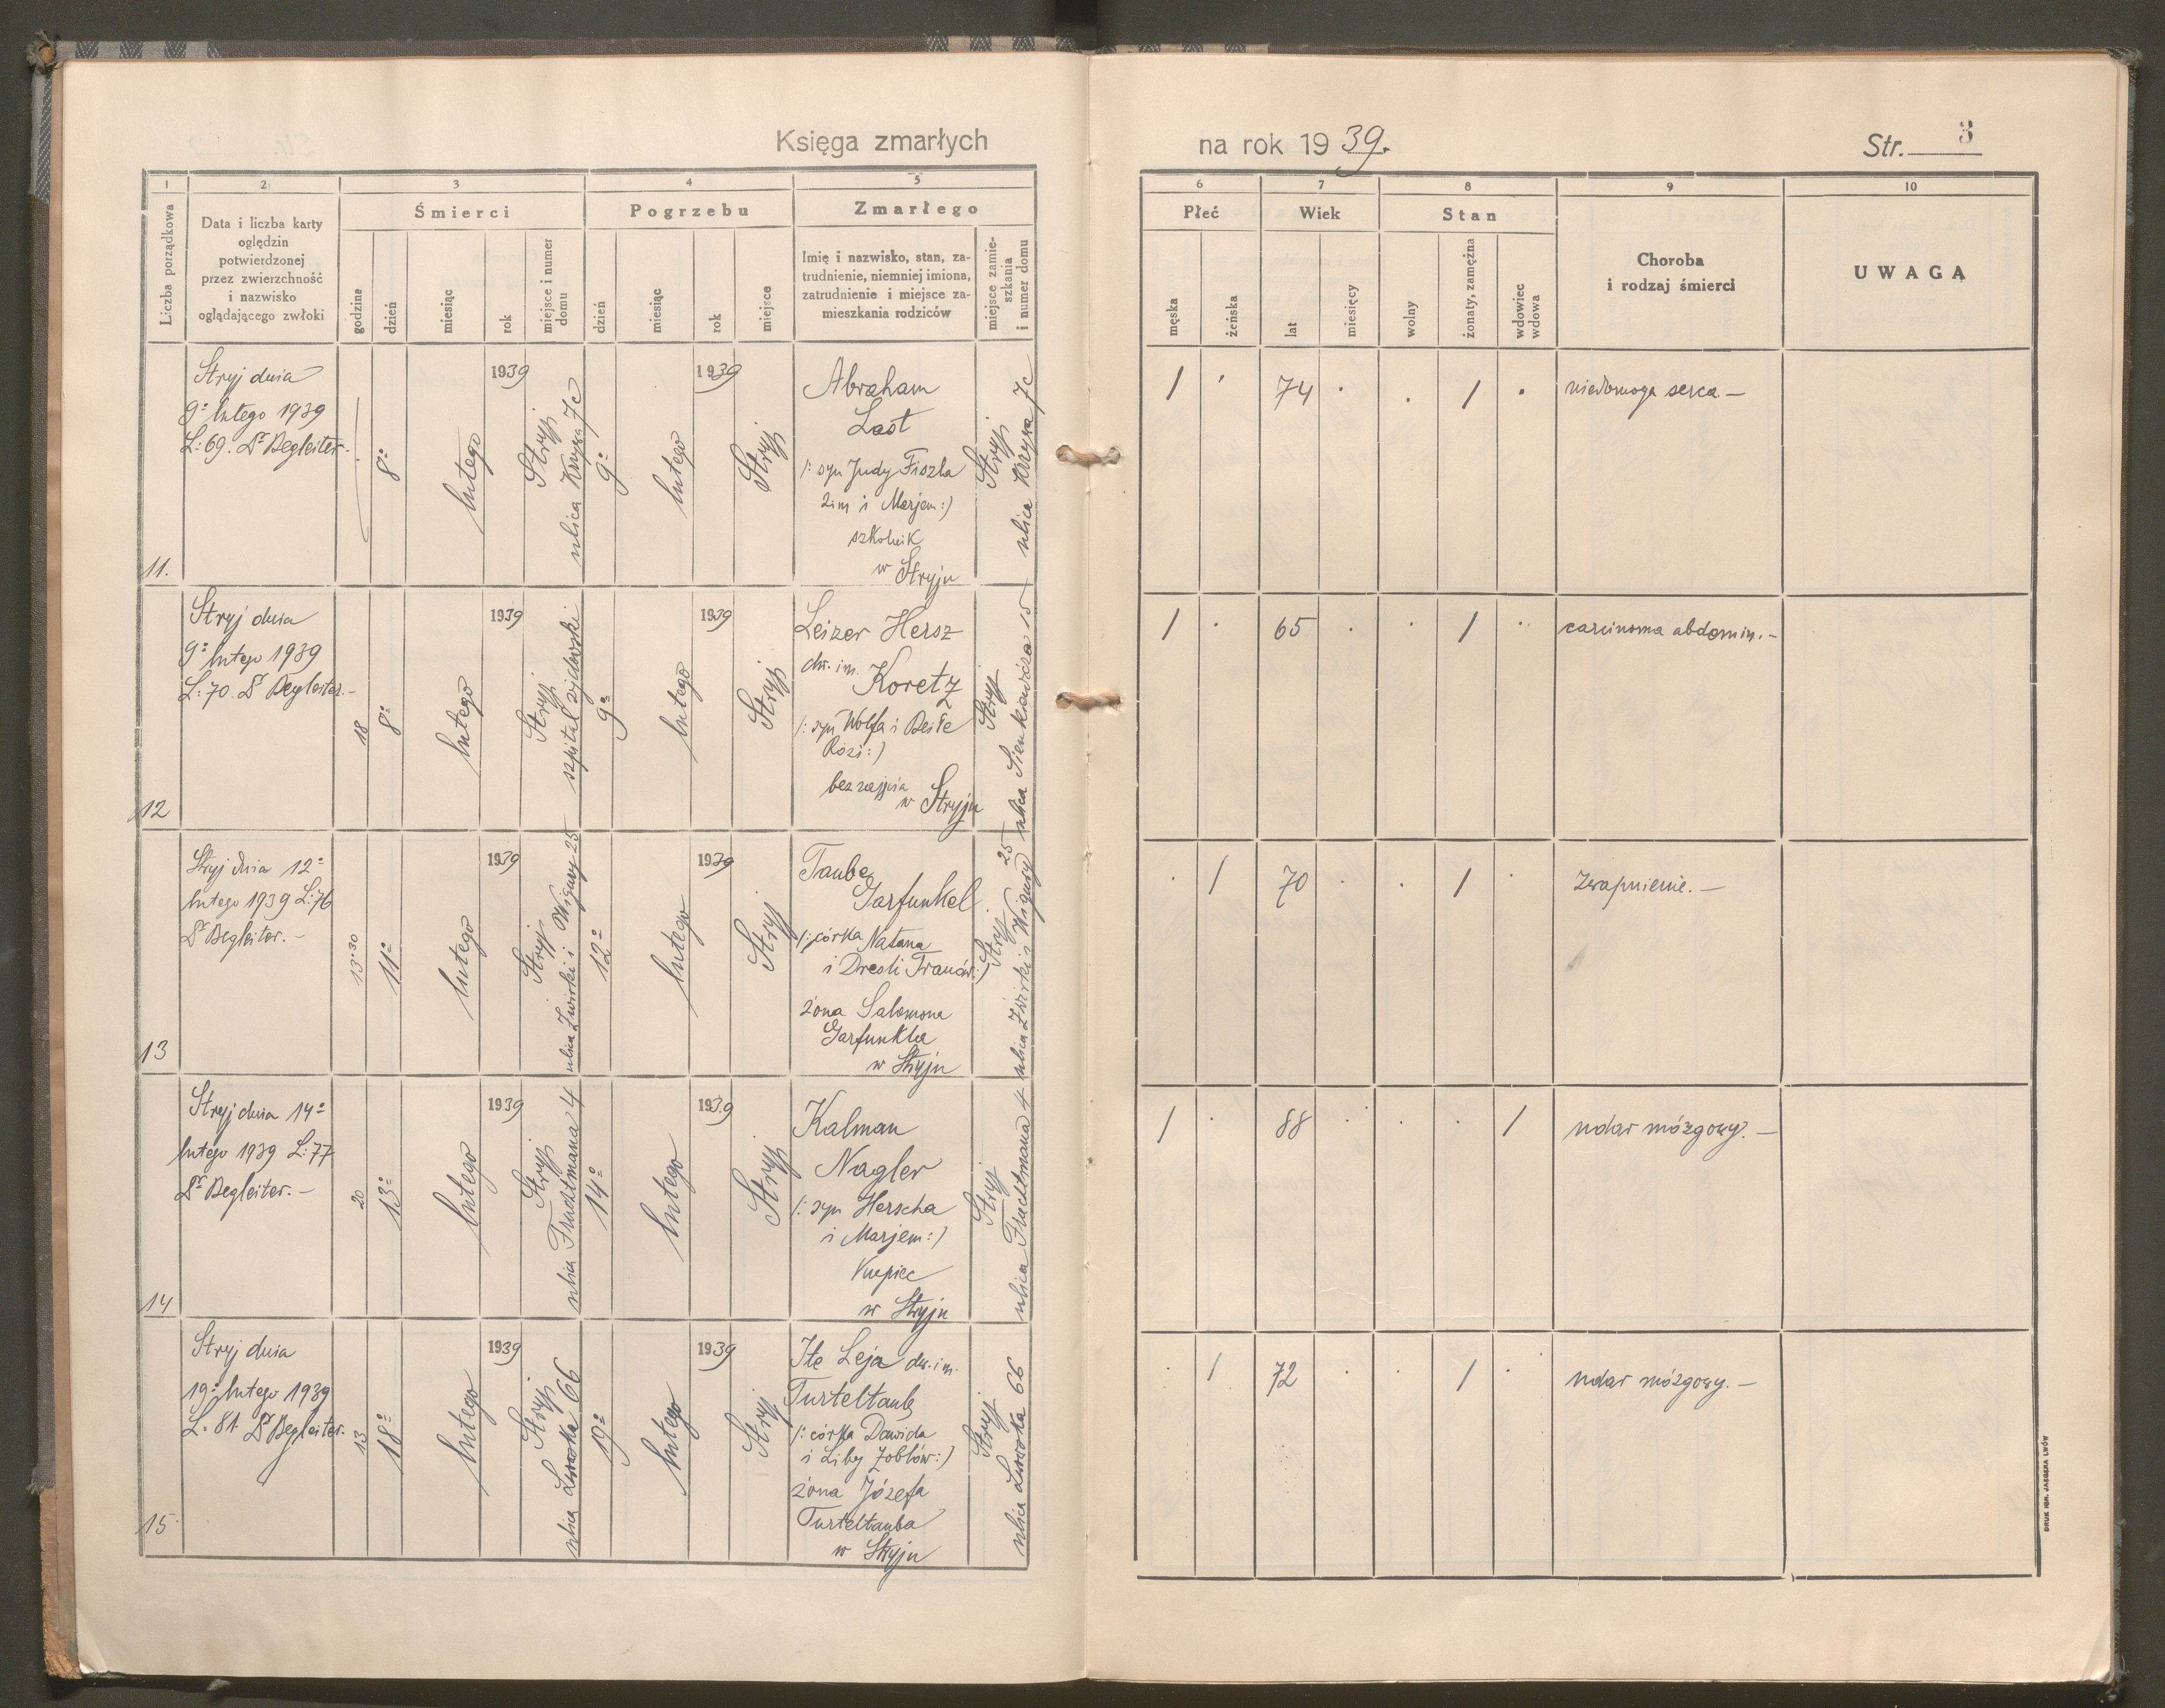 Księga zmarłych
na rok 1939.
Str. 3
1
2
3
4
5
6
7
8
9
10
Liczba porządkowa
Data i liczba karty
oględzin
potwierdzonej
przez zwierzchność
i nazwisko
oglądającego zwłoki
Śmierci
godzina
dzień
miesiąc
rok
miejsce i numer
domu
Pogrzebu
dzień
miesiąc
rok
miejsce
Zmarłego
Imię i nazwisko, stan, za-
trudnienie, niemniej imiona,
zatrudnienie i miejsce za-
mieszkania rodziców
miejsce zamie-
szkania
i numer domu
Płeć
męska
żeńska
Wiek
lat
miesięcy
Stan
wolny
żonaty, zamężna
wdowiec
wdowa
Choroba
i rodzaj śmierci
UWAGA
11.
Stryj dnia
9º lutego 1939
L: 69. Dr Begleiter.
8º
lutego
1939
Stryj
ulica Krzywa 7c
9º
lutego
1939
Stryj
Abraham
Last
/: syn Judy Fiszla
2im i Marjem :/
szkolnik
w Stryju
Stryj
ulica Krzywa 7c
/
74
/
niedomoga serca. —
12
Stryj dnia
9º lutego 1939
L: 70 Dr Begleiter. -
18
8º
lutego
1939
Stryj
szpital żydowski
9º
lutego
1939
Stryj
Leizer Hersz
dw. im.
Koretz
/: syn Wolfa i Beile
Rózi :/
bez zajęcia
w Stryju
Stryj
ulica Sienkiewicza 15
/
65
/
carcinoma abdomin. -
13
Stryj dnia 12º
lutego 1939 L: 76
Dr Begleiter. -
13·30
11º
lutego
1939
Stryj
ulica Żwirki i Wigury 25
12º
lutego
1939
Stryj
Taube
Garfunkel
/: córka Natana
i Dresli Frauów :/
żona Salomona
Garfunkla
w Stryju
Stryj 25
ulica Żwirki i Wigury
/
70
/
zwapnienie. —
14
Stryj dnia 14º
lutego 1939 L: 77
Dr Begleiter. -
20
13º
lutego
1939
Stryj
ulica Fruchtmana 4
14º
lutego
1939
Stryj
Kalman
Nagler
/: syn Herscha
i Marjem :/
Kupiec
w Stryju
Stryj
ulica Fruchtmana 4
/
88
/
udar mózgowy. —
15
Stryj dnia
19º lutego 1939
L. 81. Dr Begleiter.
13
18º
lutego
1939
Stryj
ulica Lwowska 66
19º
lutego
1939
Stryj
Ite Leja dw. im.
Turteltaub
/: córka Dawida
i Liby Zoblów :/
żona Józefa
Turteltauba
w Stryju
Stryj
ulica Lwowska 66
/
72
/
udar mózgowy. -
DRUK IGN. JAEGERA LWÓW